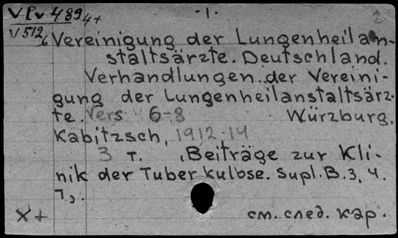 VPv 4894+ -1. 2
V 512
Vereinigung der Lungenheilan-
staltsärzte. Deutschland.
Verhandlungen der Vereini-
gung der Lungenheilanstaltsärz-
te. Vers 6-8 Würzburg.
Kabitzsch, 1912-14
3 т. (Beiträge zur Kli-
nik der Tuberkulose. Supl. B. 3, 4.
7).
X+ см. след. кар.